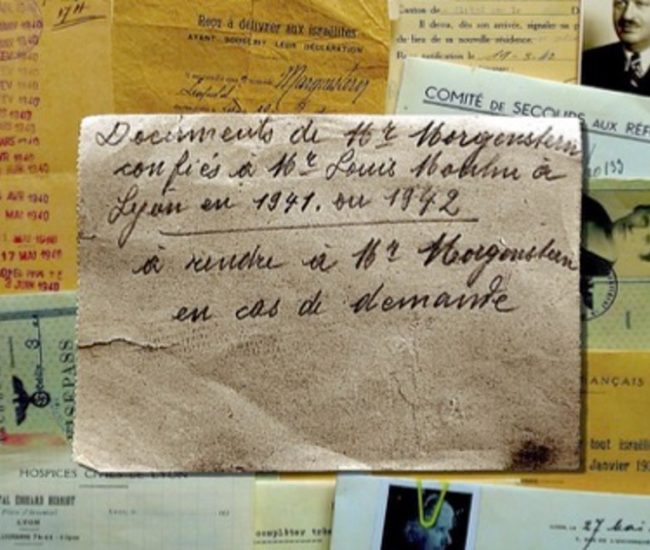 Reçu à délivrer aux israélites
AYANT SOUSCRIT LEUR DÉCLARATION
Morgenstern
Leopold
Il devra, dès son arrivée, signaler sa
de lieu de sa nouvelle résidence.
notification le 19-3-42
COMITÉ DE SECOURS AUX RÉF
Documents de Mr Morgenstern
confiés à Mr Louis Moulin à
Lyon en 1941. ou 1942
à rendre à Mr Morgenstern
en cas de demande
AVR 1940
MAI 1940
MAI 1940
17 MAI 1940
JUIN 1940
REISEPASS
RANÇAIS
tout israéli
Janvier 19
HOSPICES CIVILS DE LYON
AL EDOUARD HERRIOT
LYON
compléter
27 mai